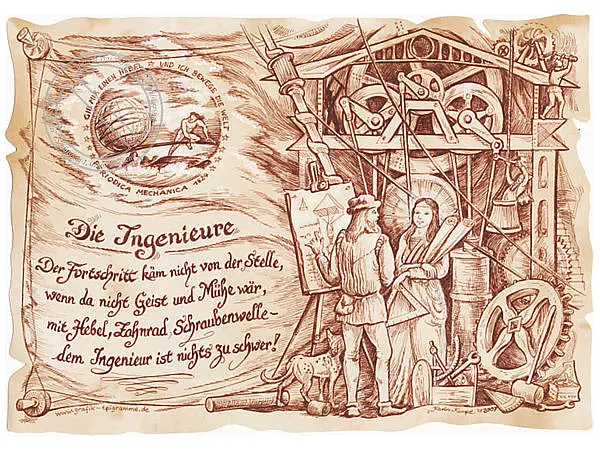 GIB MIR EINEN HEBEL ☆ UND ICH BEWEGE DIE WELT ☆
PERIODICA MECHANICA 1824
Die Ingenieure
Der Fortschritt käm nicht von der Stelle,
wenn da nicht Geist und Mühe wär,
mit Hebel, Zahnrad, Schraubenwelle –
dem Ingenieur ist nichts zu schwer!
www.grafik-epigramme.de
2007